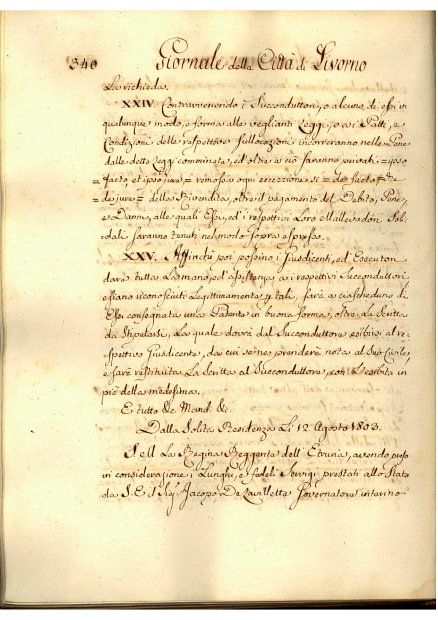 340 Giornale della Città di Livorno
La richieda.
XXIV. Contravvenendo i Succonduttori, o alcuno di essi in
qualunque modo, e forma alle veglianti Leggi, o ai Patti, e
Condizioni delle respettive sullocazioni incorreranno nelle Pene
dalle dette Leggi comminate, ed oltre a ciò saranno privati = ipso
facto, et ipso jure = remossa ogni eccezzione si = de facto
de jure = della Rivendita, oltre il pagamento del Debito, Pene,
e Danni, alle quali Essi, ed i respettivi Loro Mallevadori Soli-
dali saranno tenuti nel modo sopra espresso.
XXV. Affinchè poi possino i Jusdicenti, ed Esecutori
dare tutta La mano, ed assistenza ai respettivi Succonduttori,
e siano riconosciuti Legittimamente p tali, sarà a ciascheduno di
Essi consegnata una Patente in buona forma, oltre La Scritta
da Stipularsi, La quale dovrà dal Succonduttore esibirsi al ri-
spettivo Giusdicente, da cui se ne prenderà nota al Suo Civile,
e sarà restituita La Scritta al Succonduttore, con L'esibita in
piè della medesima.
E tutto &c Mand. &c.
Dalla Solita Residenza Li 12 Agosto 1803.
S. M La Regina Reggente dell' Etruria, avendo preso
in considerazione i Lunghi, e fedeli Servigi prestati allo Stato
da S. E. il Sig. Jacopo De Lavillette Governatore interino